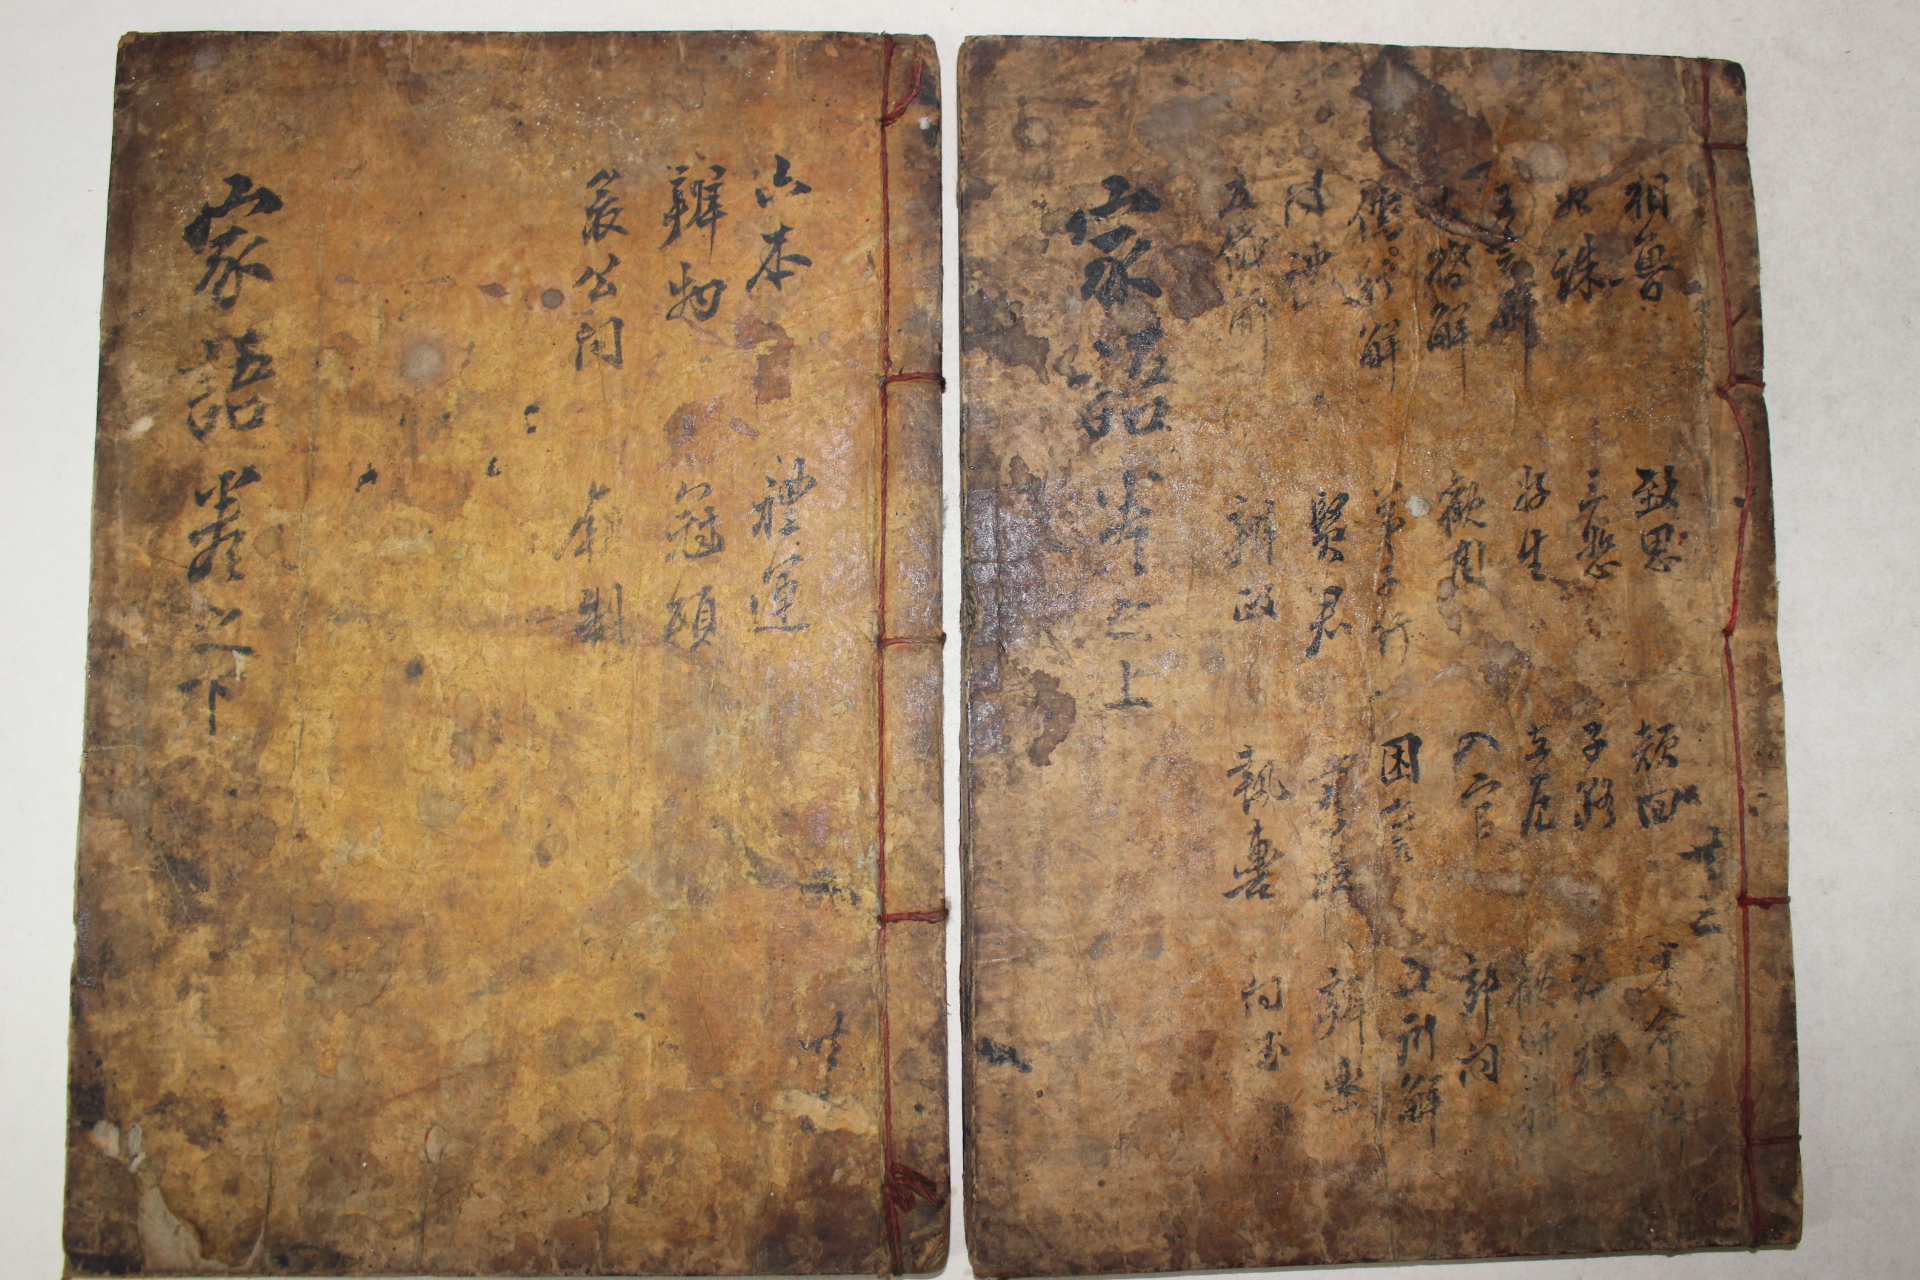 相魯 致思 顔回 本命解
始誅 三恕 子路 論禮
王言解 好生 在厄 觀鄉射
大婚解 觀周 入官 郊問
儒行解 弟子行 困誓 五刑解
問禮 賢君 辯樂
五儀解 辯政 執轡 問玉
家語卷之上
六本 禮運
辯物 冠頌
哀公問 廟制
家語卷之下